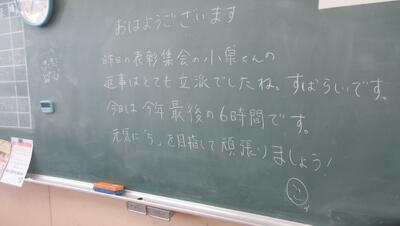 おはようございます
昨日の表彰集会の小泉くんの
返事はとても立派でしたね。すばらしいです。
今日は今年最後の6時間です。
元気に"5"を目指して頑張りましょう!